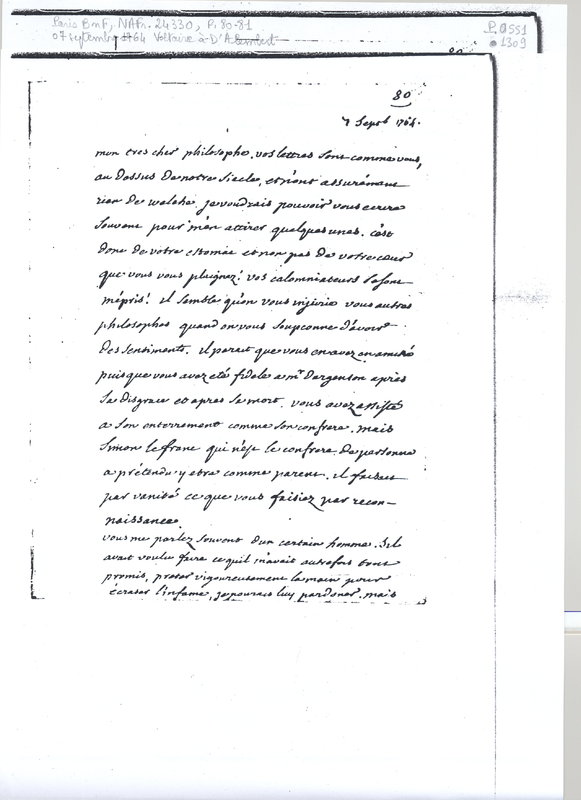 Paris BnF, NAFr. 24330, P. 80-81
07 septembre 1764 Voltaire à D'Alembert
P. 0551
1309
80
7 Septb 1764.
mon tres cher philosophe, vos lettres sont comme vous,
au dessus de notre siecle, et n'ont assurément
rien de welche. je voudrais pouvoir vous ecrire
souvent pour m'en attirer quelques unes. c'est
donc de votre estomac et non pas de votre cœur
que vous vous plaignez! vos calomniateurs se sont
mépris! il semble qu'on vous injurie vous autres
philosophes quand on vous soupconne d'avoir
des sentiments. il parait que vous en avez en amitié
puisque vous avez été fidele a mr. Dargenson après
sa disgrace et apres sa mort. vous avez assisté
a son enterrement comme son confrere. mais
simon le franc qui n'est le confrere de personne
a prétendu y etre comme parent. il faisait
par vanité ce que vous faisiez par recon-
naissance.
vous me parlez souvent d'un certain homme. s'il
avait voulu faire ce qu'il m'avait autrefois
promis, preter vigoureusement la main pour
écraser l'infame, je pourais luy pardoner. mais